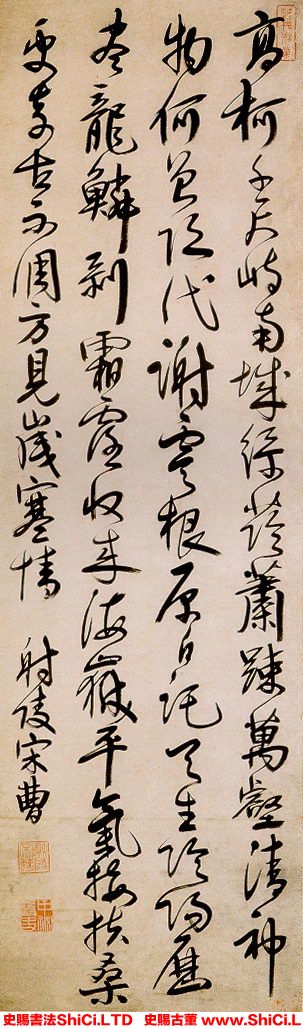 高柯千尺峙南城綠蔭蕭疎萬壑清神
物何曾隨代謝雲根原自託天生陰陽歷
盡龍鱗剝霜露收來海嶽平氣接扶桑
更奇古不凋方見歲寒情 射陵宋曹
史賜書法ShiCi.LTD 史賜古董 www.ShiCi.L